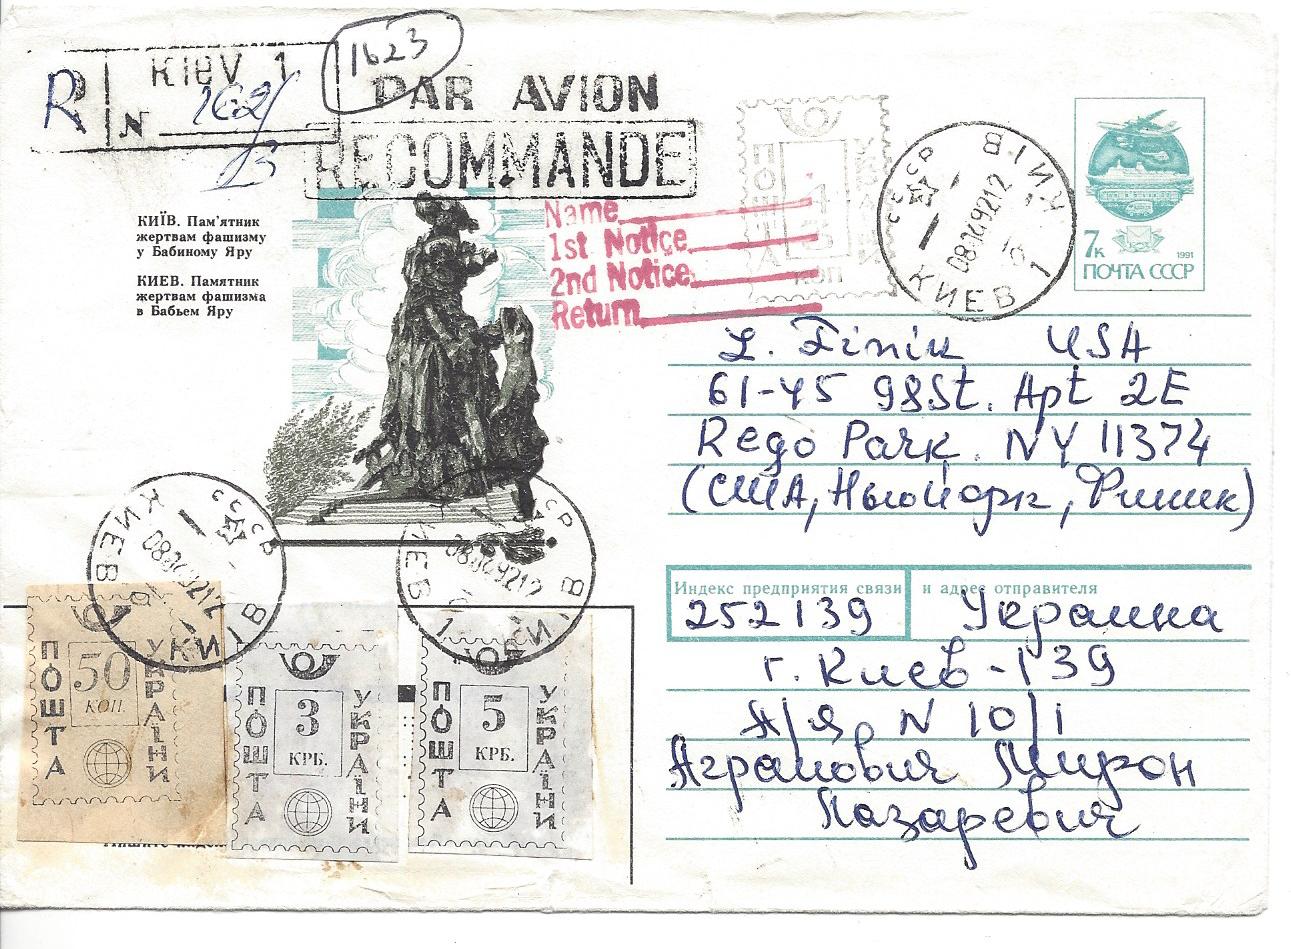 R
Kiev 1
N
1623
PAR AVION
RECOMMANDE
КИЇВ. Пам'ятник
жертвам фашизму
у Бабиному Яру
КИЕВ. Памятник
жертвам фашизма
в Бабьем Яру
Name
1st Notice
2nd Notice
Return
ПОШТА
УКРАЇНИ
КОП
СССР
КИЇВ
КИЕВ 1
7к
1991
ПОЧТА СССР
L. Finik USA
61-45 98St. Apt 2E
Rego Park, NY 11374
(США, Ньюйорк, Финик)
Индекс предприятия связи и адрес отправителя
252139 Украина
г. Киев-139
А/Я N 10/1
Агранович Мирон
Лазаревич
СССР
КИЕВ
КИЇВ
СССР
КИЕВ 1
КИЇВ
ПОШТА
50
КОП.
УКРАЇНИ
ПОШТА
3
КРБ.
УКРАЇНИ
ПОШТА
5
КРБ.
УКРАЇНИ